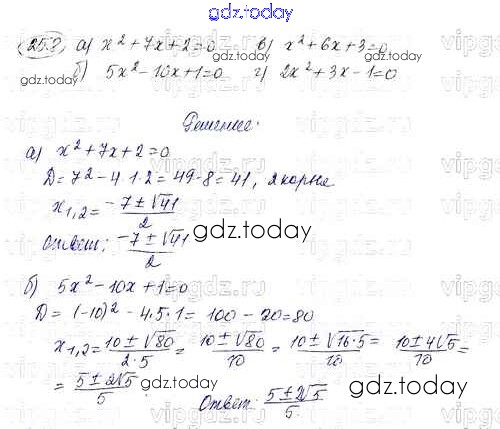 gdz.today
25.2 а) x² + 7x + 2 = 0 в) x² + 6x + 3 = 0
б) 5x² - 10x + 1 = 0 г) 2x² + 3x - 1 = 0
gdz.today
Решение.
а) x² + 7x + 2 = 0
D = 7² - 4·1·2 = 49 - 8 = 41, 2 корня
x₁,₂ = (-7 ± √41)/2
Ответ: (-7 ± √41)/2
gdz.today
б) 5x² - 10x + 1 = 0
D = (-10)² - 4·5·1 = 100 - 20 = 80
x₁,₂ = (10 ± √80)/(2·5) = (10 ± √80)/10 = (10 ± √16·5)/10 = (10 ± 4√5)/10 =
= (5 ± 2√5)/5. Ответ: (5 ± 2√5)/5.
gdz.today
gdz.today